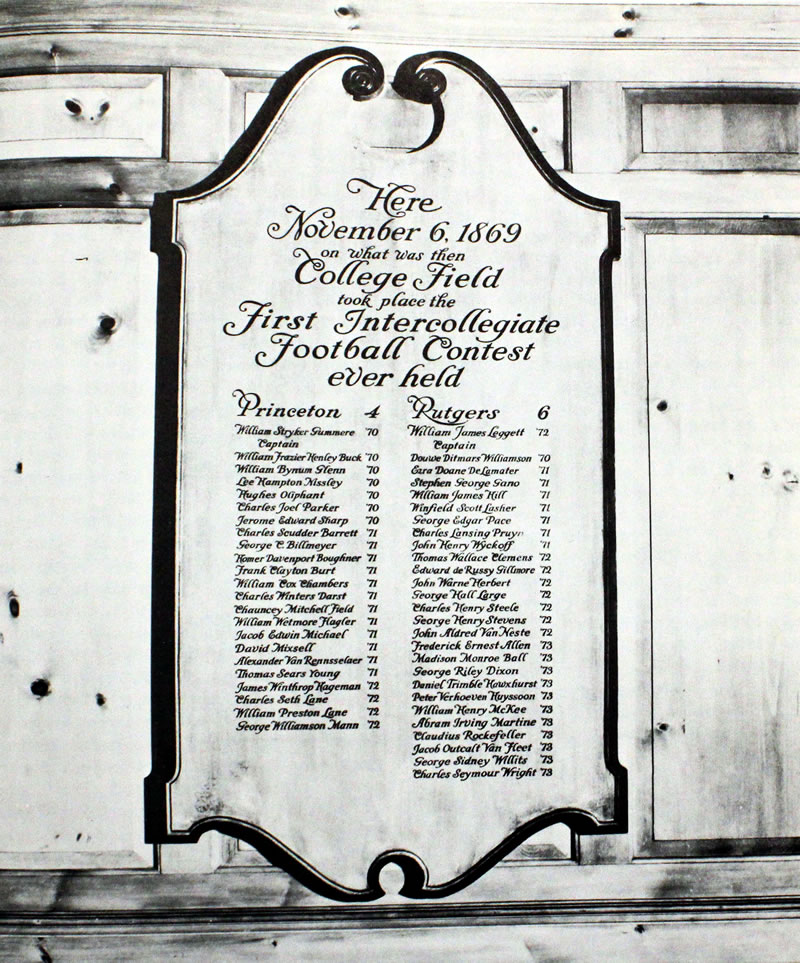 Here
November 6, 1869
on what was then
College Field
took place the
First Intercollegiate
Football Contest
ever held
Princeton 4
William Stryker Gummere '70
Captain
William Frazier Henley Buck '70
William Bynum Glenn '70
Lee Hampton Nissley '70
Hughes Oliphant '70
Charles Joel Parker '70
Jerome Edward Sharp '70
Charles Scudder Barrett '71
George C Billmeyer '71
Homer Davenport Boughner '71
Frank Clayton Burt '71
William Cox Chambers '71
Charles Winters Darst '71
Chauncey Mitchell Field '71
William Wetmore Hagler '71
Jacob Edwin Michael '71
David Mixsell '71
Alexander Van Rennsselaer '71
Thomas Sears Young '71
James Winthrop Hageman '72
Charles Seth Lane '72
William Preston Lane '72
George Williamson Mann '72
Rutgers 6
William James Leggett '72
Captain
Douwe Ditmars Williamson '70
Ezra Doane DeLamater '71
Stephen George Gano '71
William James Hill '71
Winfield Scott Lasher '71
George Edgar Pace '71
Charles Lansing Pruyn '71
John Henry Wyckoff '71
Thomas Wallace Clemens '72
Edward de Russy Gillmore '72
John Warne Herbert '72
George Hall Large '72
Charles Henry Steele '72
George Henry Stevens '72
John Aldred Van Neste '72
Frederick Ernest Allen '73
Madison Monroe Ball '73
George Riley Dixon '73
Daniel Trimble Hawxhurst '73
Peter Verhoeven Huyssoon '73
William Henry McKee '73
Abram Irving Martine '73
Claudius Rockefeller '73
Jacob Outcalt Van Fleet '73
George Sidney Willits '73
Charles Seymour Wright '73